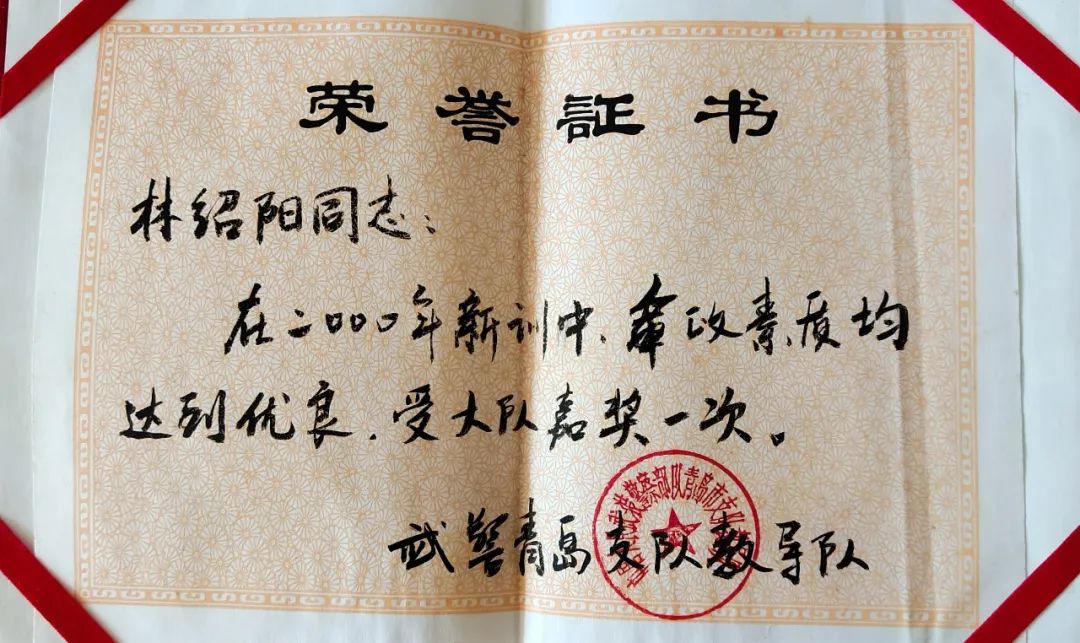 荣誉証书
林绍阳同志：
在二000年新训中、军政素质均
达到优良，受大队嘉奖一次。
武警青岛支队教导队
武装警察部队青岛市支队